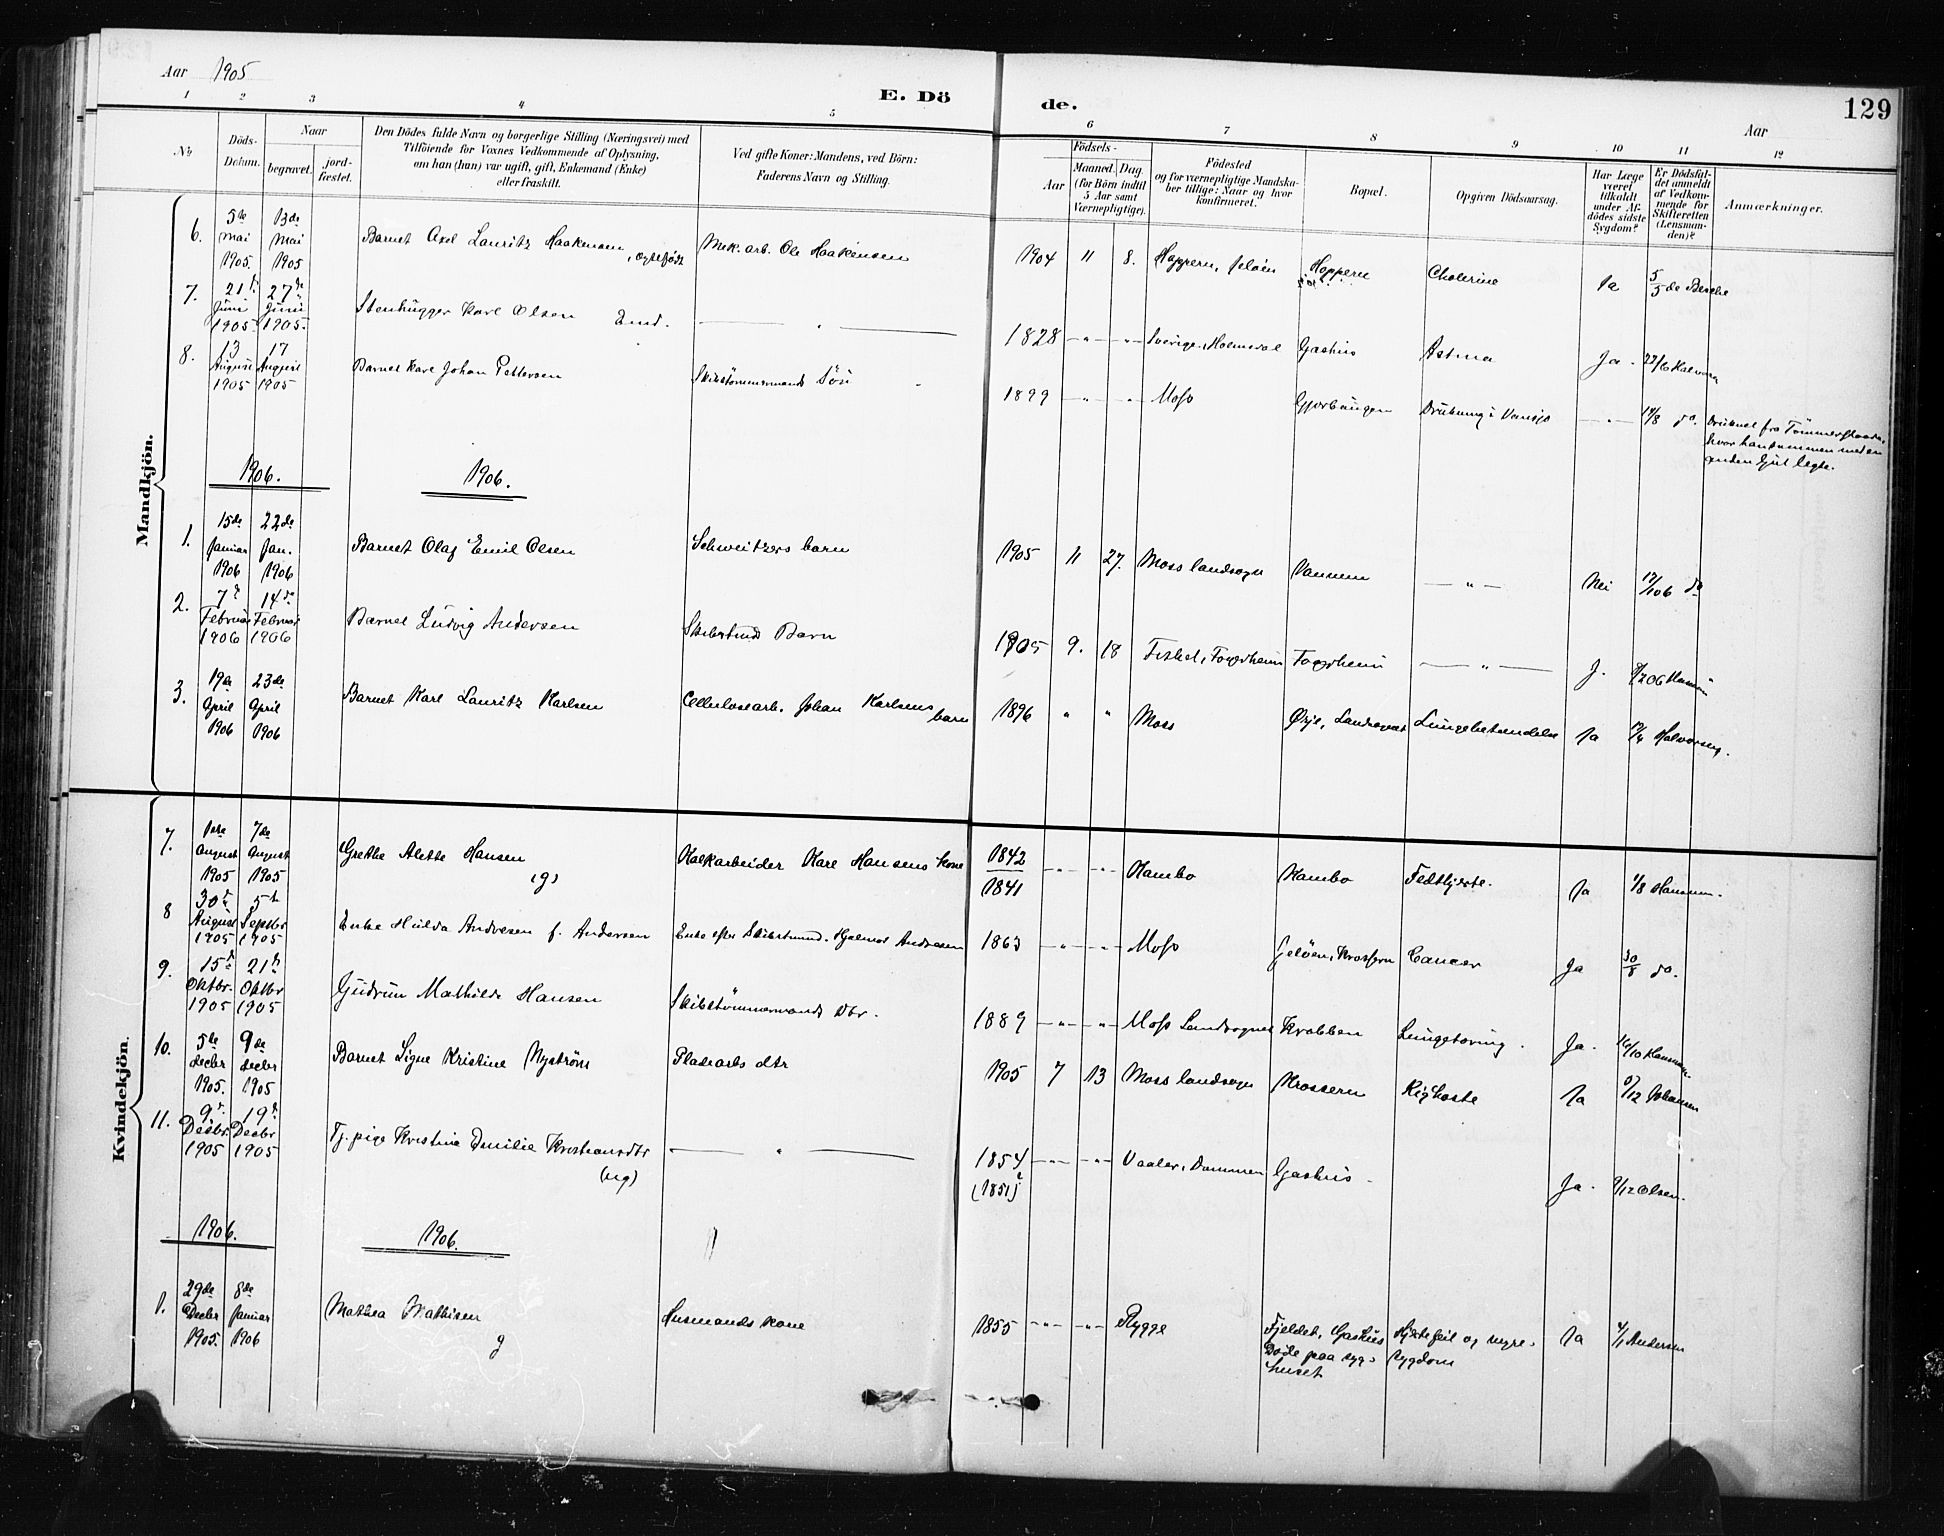 Aar 1905
E. Dö de.
Aar
129
1 2 3 4 5 6 7 8 9 10 11 12
No
Döds-Datum.
Naar
begravet.
jord-fæstet.
Den Dödes fulde Navn og borgerlige Stilling (Næringsvei) med
Tilföiende for Voxnes Vedkommende af Oplysning,
om han (hun) var ugift, gift, Enkemand (Enke)
eller fraskilt.
Ved gifte Koner: Mandens, ved Börn:
Faderens Navn og Stilling.
Födsels-
Aar
Maaned. Dag.
(for Börn indtil
5 Aar samt
Værnepligtige).
Födested
og for værnepligtige Mandska-
ber tillige: Naar og hvor
konfirmeret.
Bopæl.
Opgiven Dödsaarsag.
Har Læge
været
tilkaldt
under Af-
dödes sidste
Sygdom?
Er Dödsfal-
det anmeldt
af Vedkom-
mende for
Skifteretten
(Lensman-
den)?
Anmærkninger.
Mandkjön.
6. 5te Mai 1905. 13de Mai 1905 Barnet Axel Lauritz Haakensen, ægtefødt Mek. arb. Ole Haakensen 1904 11 8. Hoppern, Jeløen Hoppern Cholerine Ja 5/5 de
7. 21 Juni 1905 27de Juni 1905. Stenhugger Karl Olsen Emd. — " — 1828 — " — " — Sverige. Gashus Astma Ja - 22/6 Halvorsen
8. 13 August 1905 17 August 1905 Barnet Karl Johan Pettersen Skibstömmermands Sön 1899 — " — " — Moss Drukning i Vansjø — " — 14/8 do.
Druknet fra Tömmerflaade,
hvor han sammen med en
anden Gut legte.
1906. 1906.
1. 15de Januar 1906 22de Jan. 1906 Barnet Olaf Emil Olsen Schweitzers barn 1905 11 27. Moss landsogn Vannem — " — Nei do
2. 7de Februar 1906 14de Februar 1906 Barnet Ludvig Andersen Skibstmds Barn 1905 9. 18 Fagerheim — " — J.
3. 19de April 1906 23de April 1906 Barnet Karl Lauritz Karlsen Cellulosearb. Johan Karlsens barn 1896 " " Moss Landsognet Lungebetændelse Ja Halvorsen.
Kvindekjön.
7. 1ste August 1905 7de August 1905 Grethe Alette Hansen (g) Kalkarbeider Karl Hansens kone 1842 1841 — " — " — Kambo Kambo Fedthjerte. Ja 1/8
8 30te August 1905 5te Septbr 1905 Enke Hulda Andresen f. Andersen Enke efter Skibstmd. Hjalmar Andresen 1863 — " — " — Moss Jeløen, Krossern Cancer Ja 30/8 do.
9. 15de Oktbr. 1905 21de Oktbr 1905 Gudrun Mathilde Hansen Skibstömmermands Dtr. 1889 — " — " — Moss Landsogn Krabben Lungetæring. Ja. 16/10
10. 5te decbr 1905. 9de decbr 1905 Barnet Signe Kristine Nyström Pladsarb. dtr 1905 7 13 Moss landsogn Krossern Kighoste Ja Johansen
11. 9de Decbr. 1905 19de Decbr 1905 Tj. pige Kristine Emilie Kristiansdtr (ug) — " — 1854 (1851)? — " — " — Vaaler, Dammen Gashus Ja. 9/12 Olsen.
1906. 1906.
1. 29de Decbr 1905. 8de Januar 1906 Mathea Mathisen g Husmands kone 1855 — " — " — Rygge Fjeldet, Gashus
Døde paa syg-
huset
Hjertefeil og nyre-
sygdom
Ja 4/1 Andersen